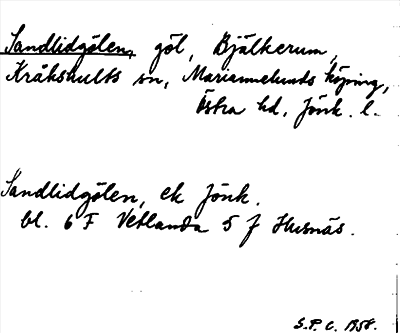 Sandlidgölen, göl, Bjälkerum,
Kråkshults sn, Mariannelunds köping,
Östra hd, Jönk. l.
Sandlidgölen, ek Jönk.
bl. 6 F Vetlanda 5 f Husnäs.
S.P.C. 1958.